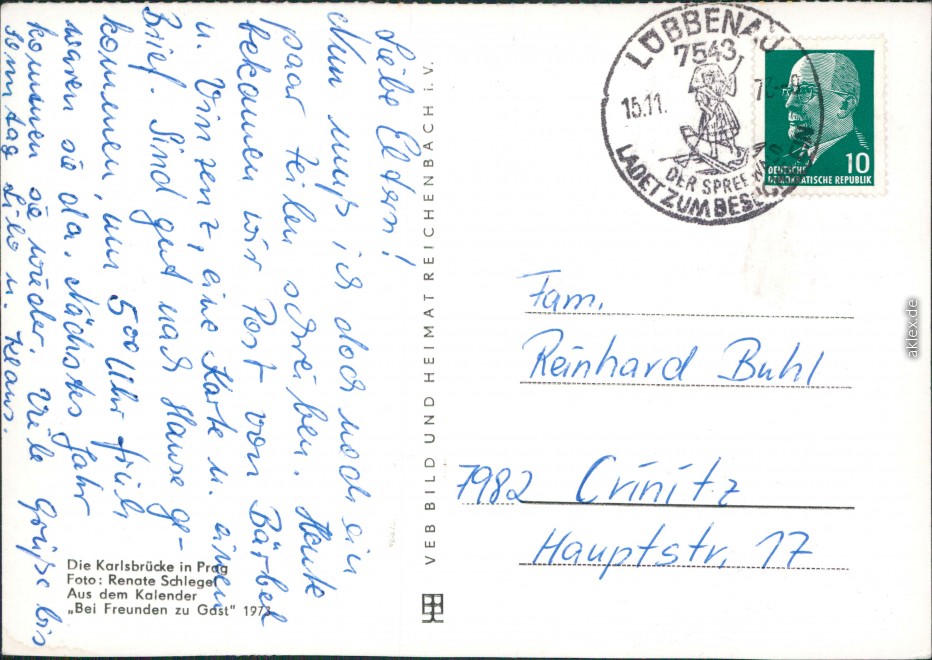 Liebe Eltern!
Nun muß ich doch noch ein
paar Zeilen schreiben. Heute
bekamen wir Post von Bärbel
u. Vinzenz, eine Karte u. einen
Brief. Sind gut nach Hause ge-
kommen, um 5.00 Uhr früh
waren sie da. Nächstes Jahr
kommen sie wieder. Viele Grüße bis
Sonntag Lilo u. Klaus.
Die Karlsbrücke in Prag
Foto: Renate Schlegel
Aus dem Kalender
„Bei Freunden zu Gast" 1973
VEB BILD UND HEIMAT REICHENBACH i. V.
LÜBBENAU
7543
15.11.
DER SPREEWALD
LADET ZUM BESUCH
DEUTSCHE
DEMOKRATISCHE REPUBLIK
10
Fam.
Reinhard Buhl
7982 Crinitz
Hauptstr. 17
aklex.de